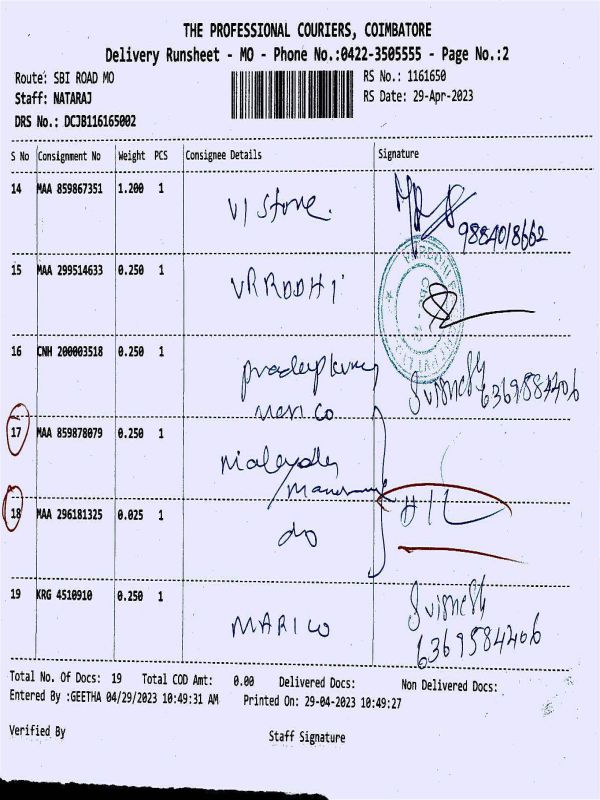 THE PROFESSIONAL COURIERS, COIMBATORE
Delivery Runsheet - MO - Phone No.:0422-3505555 - Page No.:2
Route: SBI ROAD MO RS No.: 1161650
Staff: NATARAJ RS Date: 29-Apr-2023
DRS No.: DCJB116165002
S No Consignment No Weight PCS Consignee Details Signature
14 MAA 859867351 1.200 1 VI Store.
9884018662
15 MAA 299514633 0.250 1 VRRDDHI
16 CNH 200003518 0.250 1 pradeepkumar
6369584406
marico
17 MAA 859878079 0.250 1
18 MAA 296181325 0.025 1 do
19 KRG 4510910 0.250 1 MARICO
6369584406
Total No. Of Docs: 19 Total COD Amt: 0.00 Delivered Docs: Non Delivered Docs:
Entered By :GEETHA 04/29/2023 10:49:31 AM Printed On: 29-04-2023 10:49:27
Verified By Staff Signature